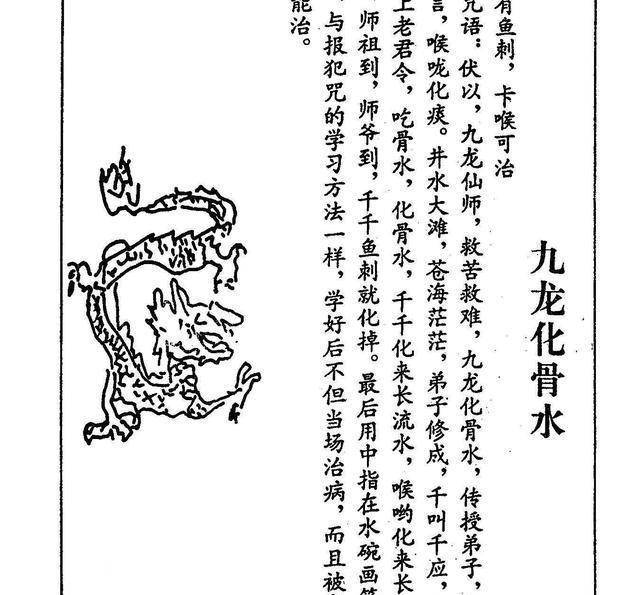 九龙化骨水
有鱼刺，卡喉可治
咒语：伏以，九龙仙师，救苦救难，九龙化骨水，传授弟子，
，喉咙化痰。井水大滩，苍海茫茫，弟子修成，千叫千应，
上老君令，吃骨水，化骨水，千千化来长流水，喉哟化来长
师祖到，师爷到，千千鱼刺就化掉。最后用中指在水碗画
与报犯咒的学习方法一样，学好后不但当场治病，而且被
能治。